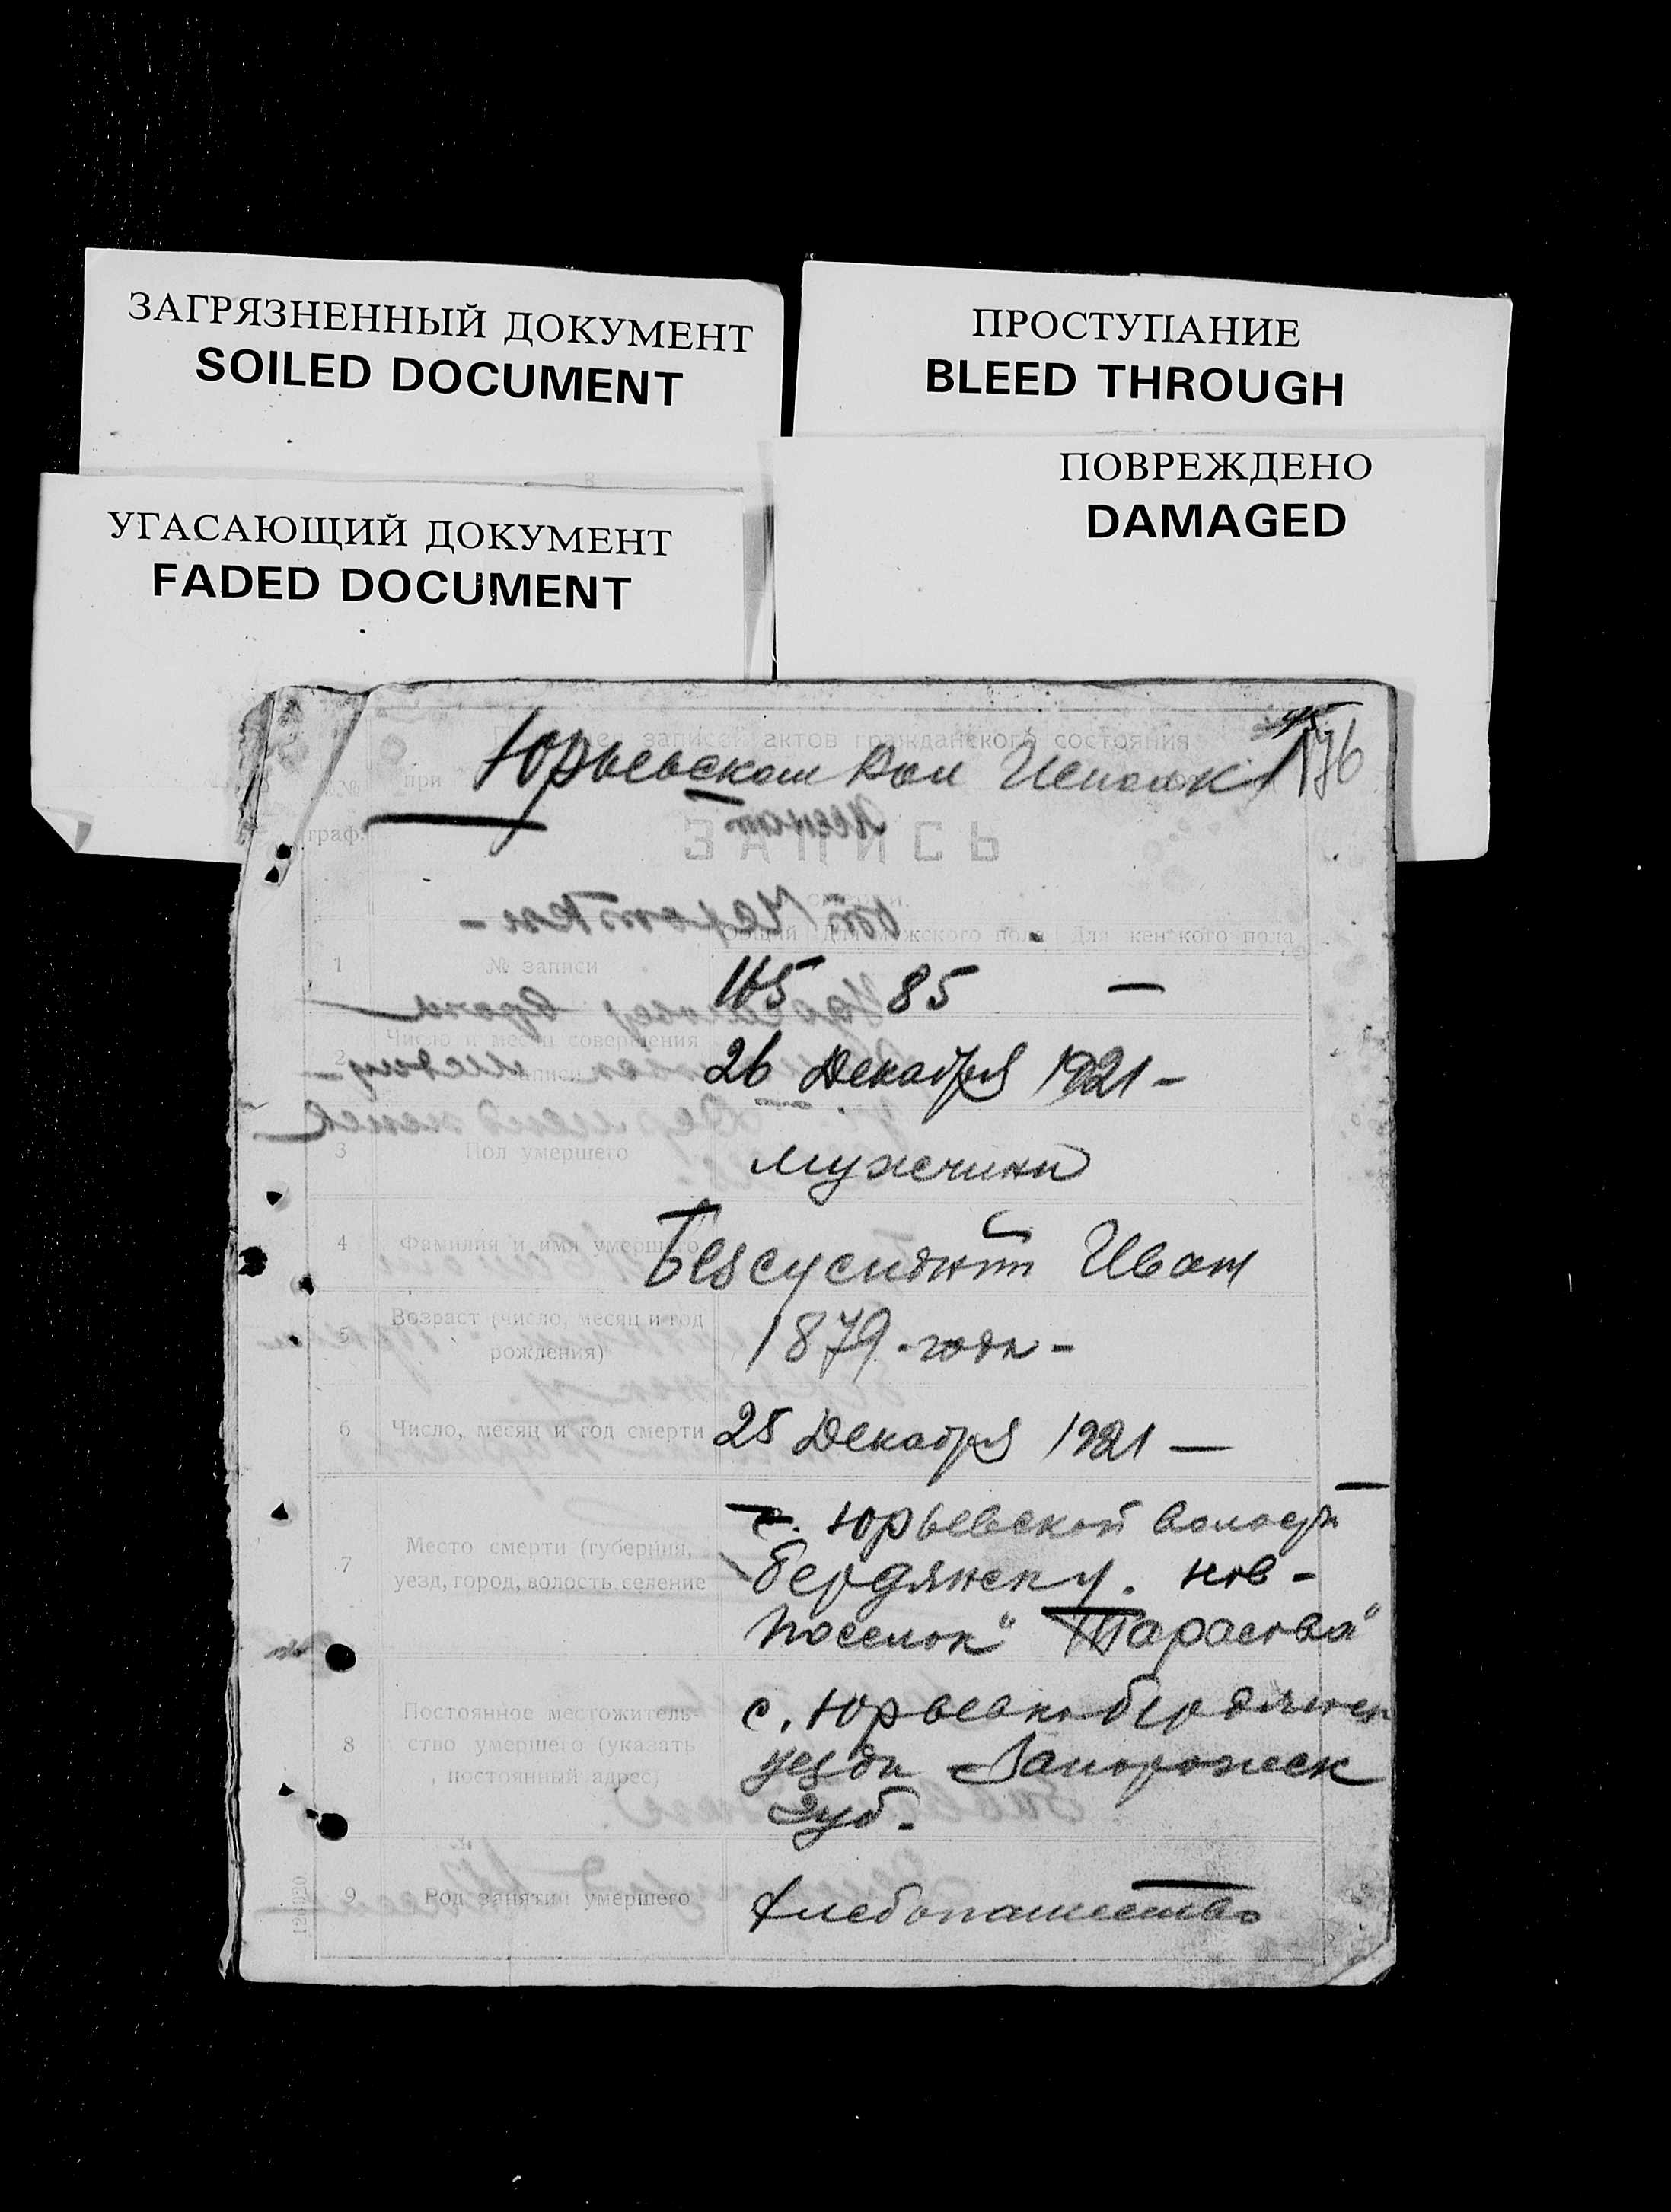 ЗАГРЯЗНЕННЫЙ ДОКУМЕНТ
SOILED DOCUMENT
ПРОСТУПАНИЕ
BLEED THROUGH
УГАСАЮЩИЙ ДОКУМЕНТ
FADED DOCUMENT
ПОВРЕЖДЕНО
DAMAGED
записей актов гражданского состояния
при Юрьевском Вол Исполк
№
граф.
ЗАПИСЬ
Общий Для мужского пола Для женского пола
1 № записи 165 85 —
2 Число и месяц совершения
записи 26 Декабря 1921 -
3 Пол умершего мужчина
4 Фамилия и имя умершего Иван
5 Возраст (число, месяц и год
рождения) 1879 - года -
6 Число, месяц и год смерти 25 Декабря 1921 —
7 Место смерти (губерния,
уезд, город, волость, селение
с. Юрьевской волости
бердянск у.
поселок "Тарасовка"
8 Постоянное местожитель-
ство умершего (указать
постоянный адрес)
с. Юрьевка бердянск
уезда Запорожск
Губ.
9 Род занятий умершего Хлебопашество